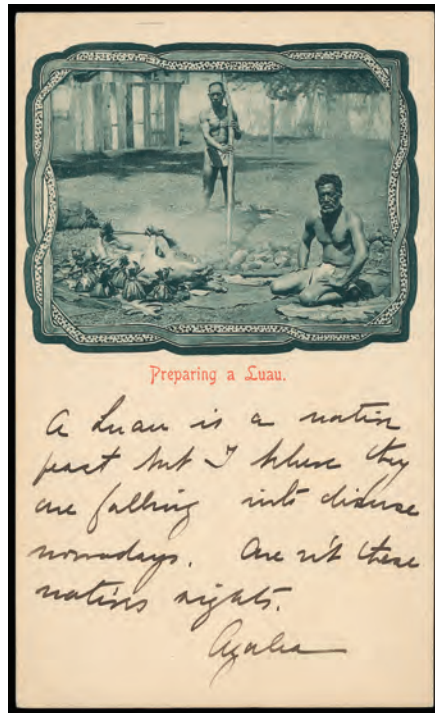 Preparing a Luau.
A Luau is a native
feast but I believe they
are falling into disuse
nowadays. Are n't these
natives sights.